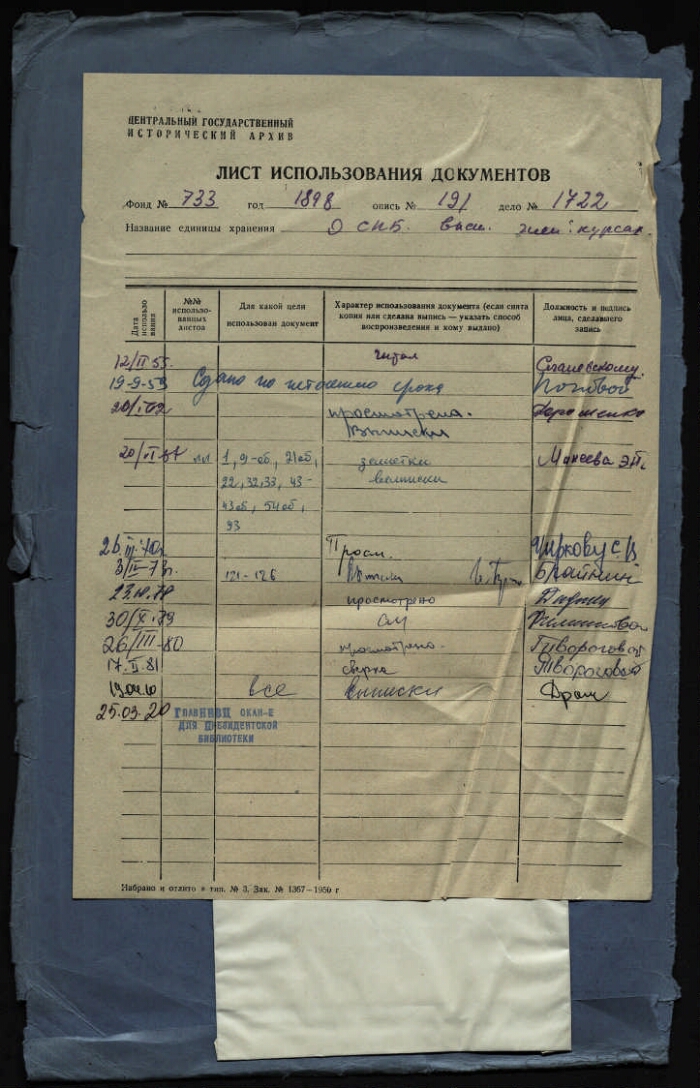 ЦЕНТРАЛЬНЫЙ ГОСУДАРСТВЕННЫЙ
ИСТОРИЧЕСКИЙ АРХИВ
ЛИСТ ИСПОЛЬЗОВАНИЯ ДОКУМЕНТОВ
Фонд № 733 год 1898 опись № 191 дело № 1722
Название единицы хранения О СПБ. высш. жен. курсах.
Дата использования
№№ использованных листов
Для какой цели использован документ
Характер использования документа (если снята копия или сделана выпись — указать способ воспроизведения и кому выдано)
Должность и подпись лица, сделавшего запись
12/II 55. читал
19-9-59 Сдано по истечению срока
просмотрена. Дорошенко
Выписки
20/II-67 лл 1, 9-об, 21об, заметки Макеева
22, 32,33, 43- выписки
43об, 54об,
93
26/III-70г. Просм. Чиркову С.В
3/IV-73г. 121-126 Выписки Брайнин
просмотрено
30/X-79
26/III-80 просмотрено. Твороговой
17.II.81 сверка Твороговой
все Выписки
25.03.20 ГЛАВНЫЙ ОКАН-Е
ДЛЯ ПРЕЗИДЕНТСКОЙ
БИБЛИОТЕКИ
Набрано и отлито в тип. № 3. Зак. № 1367—1950 г